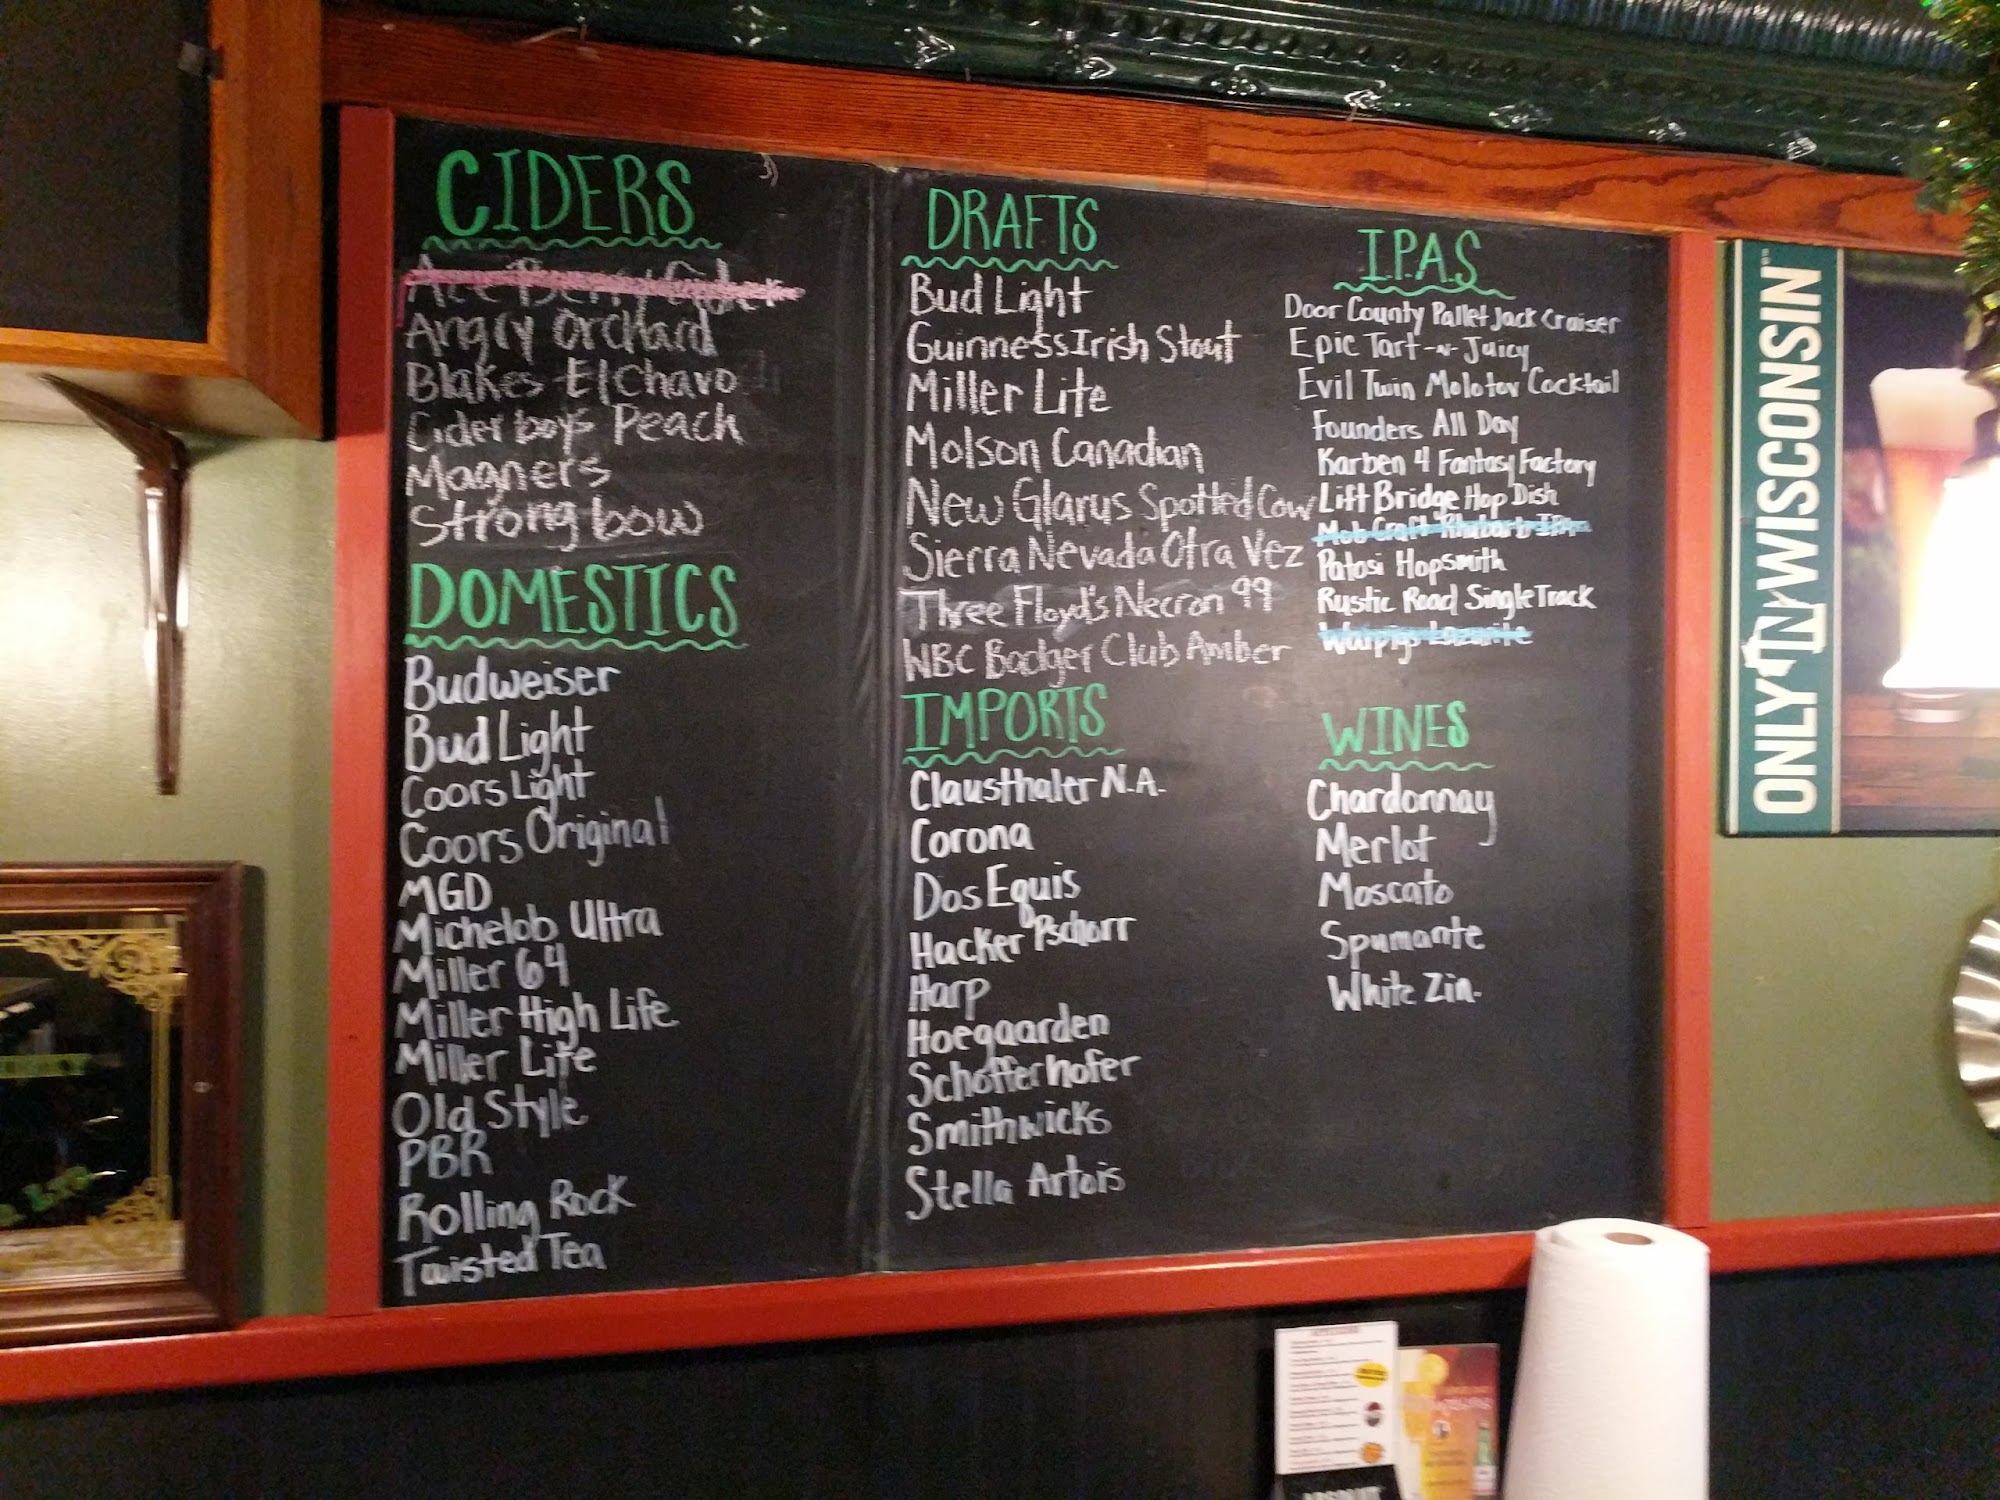 CIDERS
Ace Berry Cider
Angry Orchard
Blakes El Chavo
Ciderboys Peach
Magners
Strongbow
DOMESTICS
Budweiser
Bud Light
Coors Light
Coors Original
MGD
Michelob Ultra
Miller 64
Miller High Life
Miller Lite
Old Style
PBR
Rolling Rock
Twisted Tea
DRAFTS
Bud Light
Guinness Irish Stout
Miller Lite
Molson Canadian
New Glarus Spotted Cow
Sierra Nevada Otra Vez
Three Floyd's Necron 99
WBC Badger Club Amber
IMPORTS
Clausthaler N.A.
Corona
Dos Equis
Hacker Pschorr
Harp
Hoegaarden
Schofferhofer
Smithwicks
Stella Artois
I.P.A.S
Door County Pallet Jack Craiser
Epic Tart-N-Juicy
Evil Twin Molotov Cocktail
Founders All Day
Karben 4 Fantasy Factory
Lift Bridge Hop Dish
Mob Craft Rhubarb IPA
Potosi Hopsmith
Rustic Road Single Track
Warpigs Lazurite
WINES
Chardonnay
Merlot
Moscato
Spumante
White Zin.
ONLY IN WISCONSIN
ABSOLUT